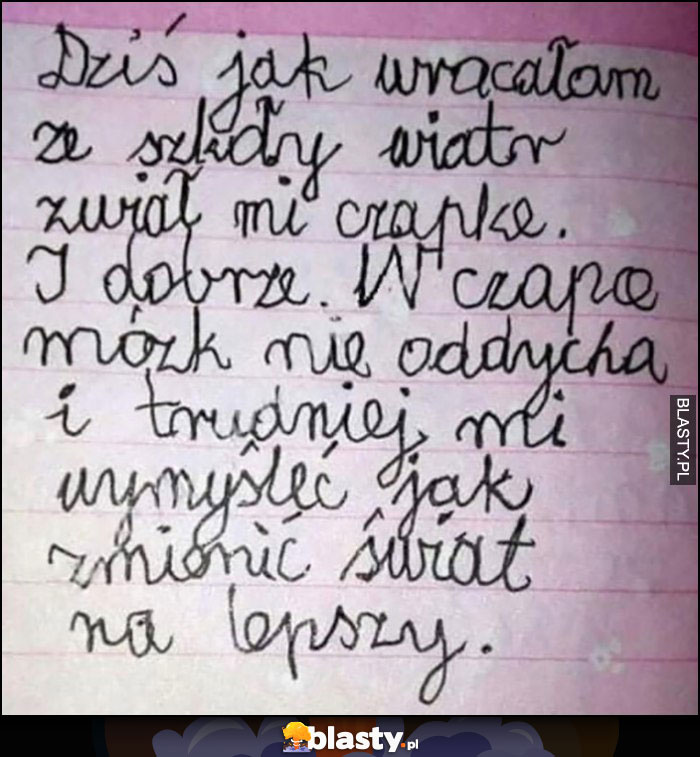 Dziś jak wracałam
ze szkoły wiatr
zwiał mi czapkę.
I dobrze. W czapce
mózk nie oddycha
i trudniej mi
wymyśleć jak
zmienić świat
na lepszy.
BLASTY.PL
blasty.pl